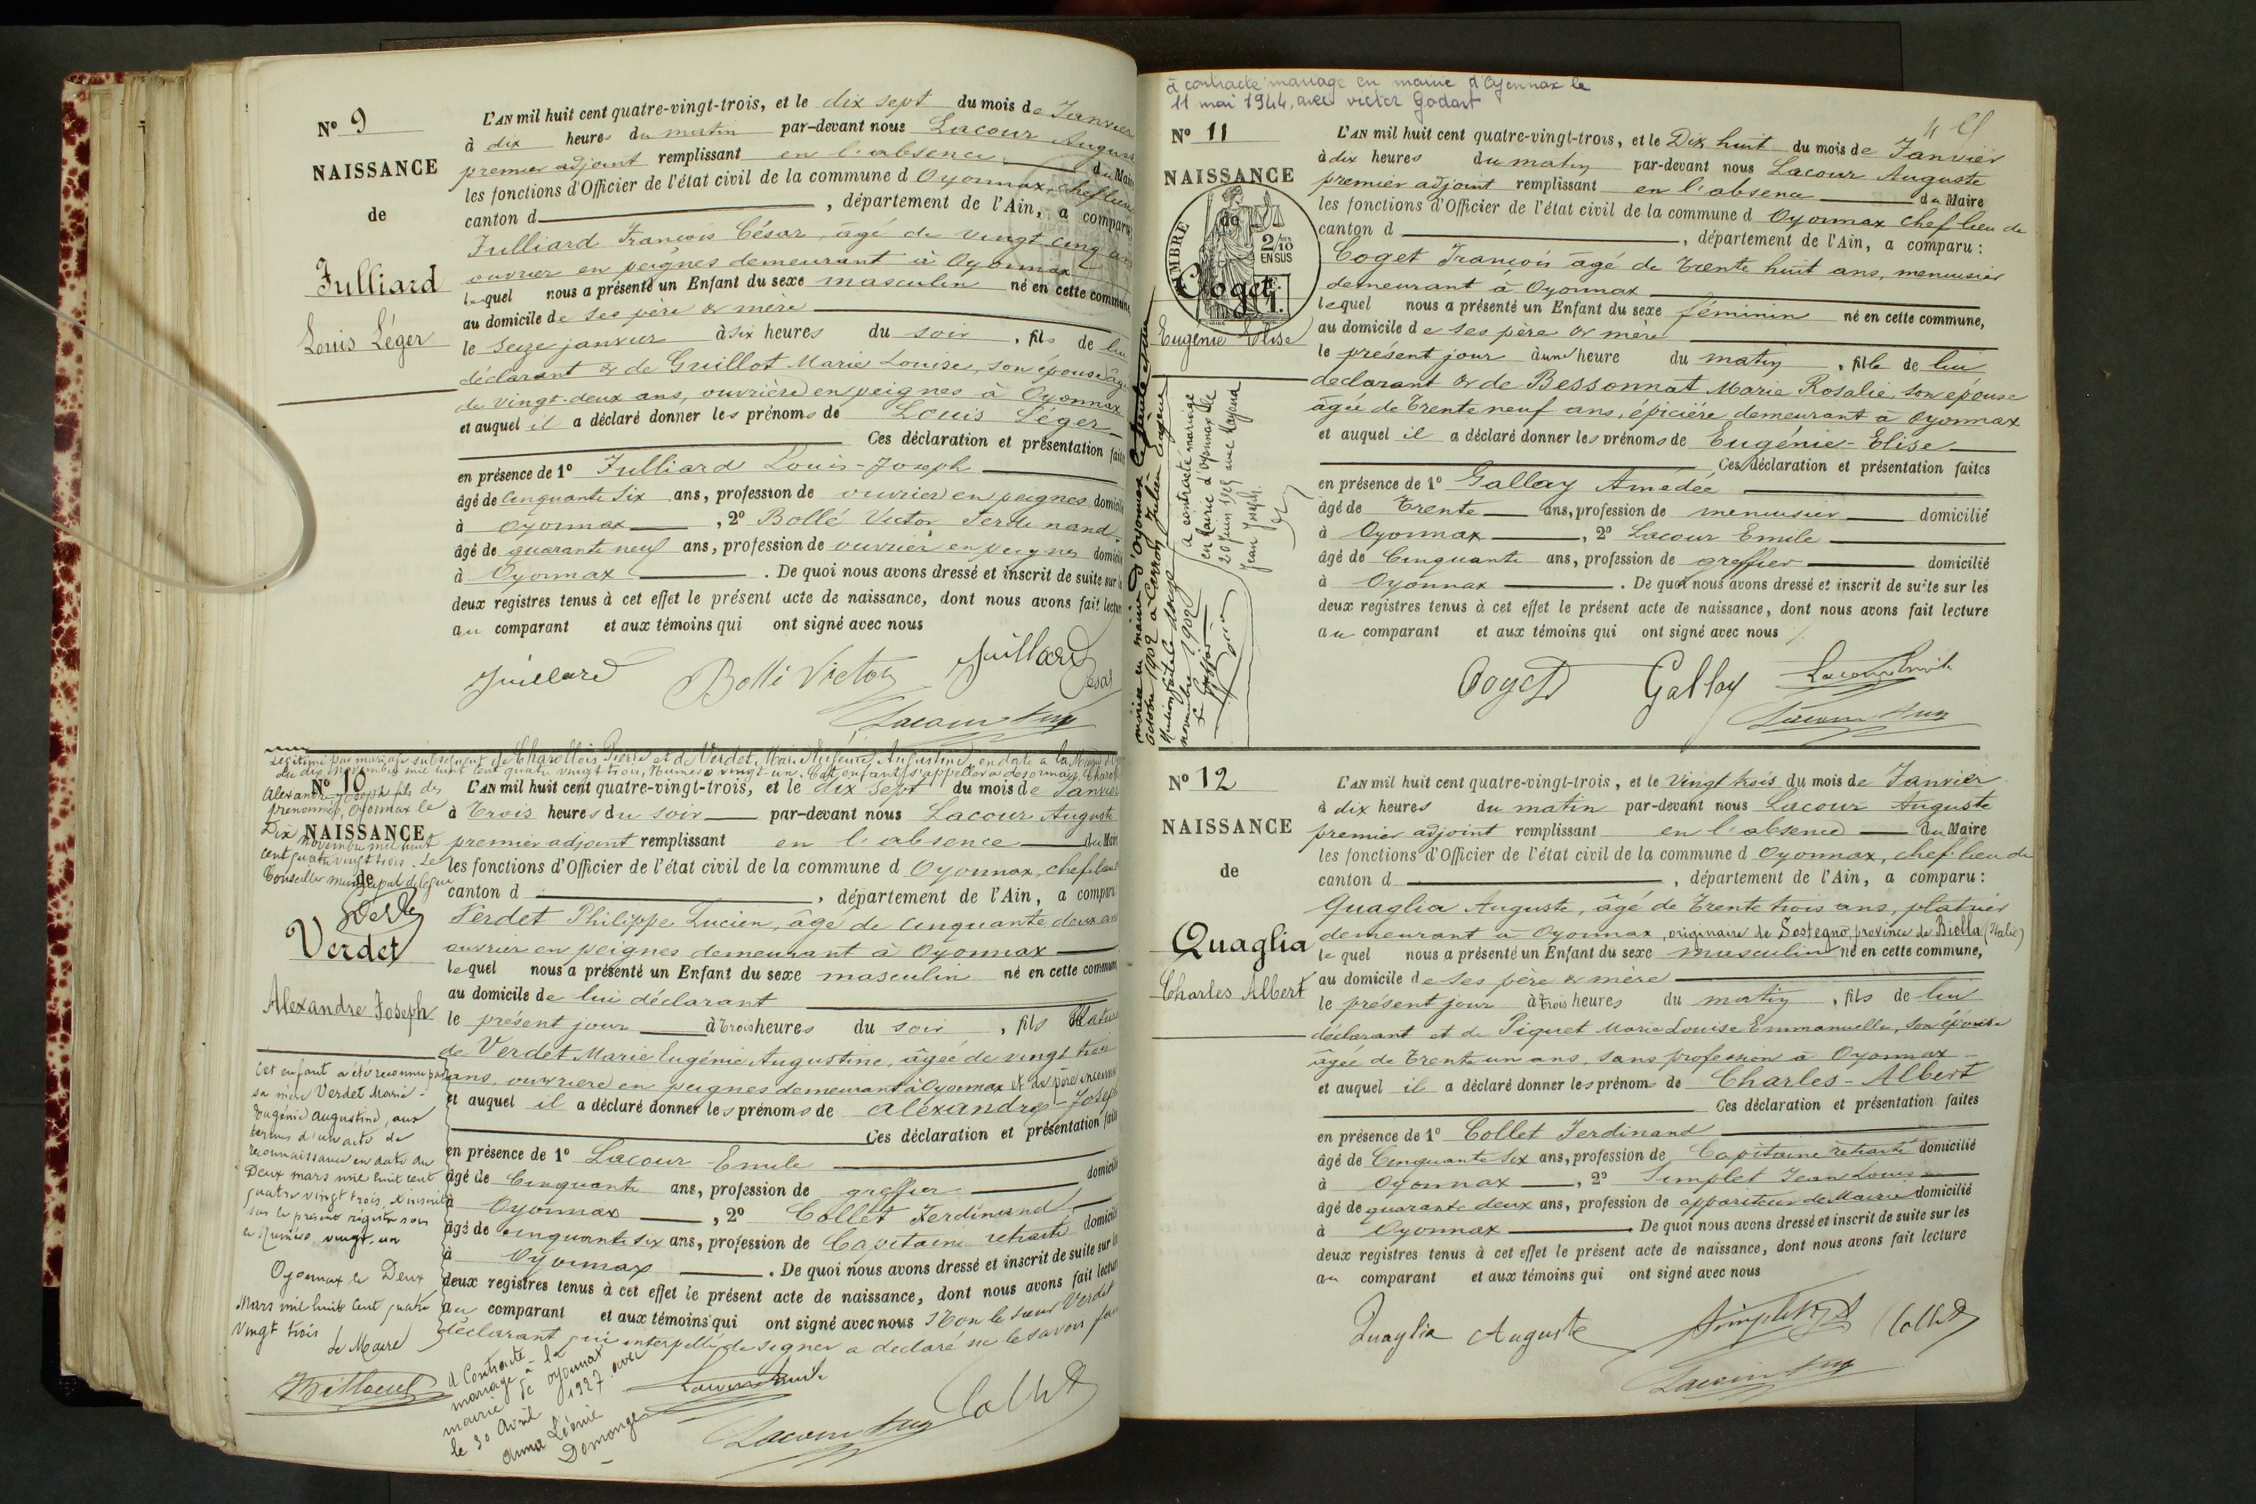 N° 9
NAISSANCE
de
Julliard
Louis Léger
L'AN mil huit cent quatre-vingt-trois, et le dix sept du mois de Janvier
à dix heures du matin par-devant nous Lacour Auguste
premier adjoint remplissant en l'absence du Maire
les fonctions d'Officier de l'état civil de la commune d Oyonnax, chef lieu
canton d , département de l'Ain, a comparu
Julliard François César, âgé de vingt cinq ans
ouvrier en peignes demeurant à Oyonnax
lequel nous a présenté un Enfant du sexe masculin né en cette commune
au domicile de ses père & mère
le seize janvier à six heures du soir , fils de lui
déclarant & de Guillot Marie Louise, son épouse âgée
de vingt-deux ans, ouvrière en peignes à Oyonnax
et auquel il a déclaré donner les prénoms de Louis Léger
Ces déclaration et présentation faites
en présence de 1° Julliard Louis-Joseph
âgé de Cinquante six ans, profession de ouvrier en peignes domicilié
à Oyonnax , 2° Bollé Victor Ferdinand
âgé de quarante neuf ans, profession de ouvrier en peignes domicilié
à Oyonnax . De quoi nous avons dressé et inscrit de suite sur les
deux registres tenus à cet effet le présent acte de naissance, dont nous avons fait lecture
au comparant et aux témoins qui ont signé avec nous
Juillard Bollé Victor Juillard César
Lacour Aug
Légitimé par mariage subséquent de Charollois Pierre et de Verdet, Marie Eugénie Augustine, en date à la Mairie
du dix novembre mil huit cent quatre vingt trois, Numéro vingt-un. Cet enfant s'appellera désormais
Alexandre Joseph fils des
prénommés, Oyonnax le
Dix
novembre mil huit
cent quatre vingt trois. Le
Conseiller municipal délégué
N° 10
NAISSANCE
de
Verdet
Alexandre Joseph
L'AN mil huit cent quatre-vingt-trois, et le dix sept du mois de Janvier
à Trois heures du soir par-devant nous Lacour Auguste
premier adjoint remplissant en l'absence du Maire
les fonctions d'Officier de l'état civil de la commune d Oyonnax, chef lieu
canton d , département de l'Ain, a comparu
Verdet Philippe Lucien, âgé de cinquante deux ans
ouvrier en peignes demeurant à Oyonnax
lequel nous a présenté un Enfant du sexe masculin né en cette commune
au domicile de lui déclarant
le présent jour à trois heures du soir , fils Naturel
de Verdet Marie Eugénie Augustine, âgée de vingt trois
ans, ouvrière en peignes demeurant à Oyonnax et de père inconnu
et auquel il a déclaré donner les prénoms de alexandre-Joseph
Ces déclaration et présentation faites
en présence de 1° Lacour Emile
âgé de Cinquante ans, profession de greffier domicilié
à Oyonnax , 2° Collet Ferdinand
âgé de cinquante six ans, profession de Capitaine retraité domicilié
à Oyonnax . De quoi nous avons dressé et inscrit de suite sur les
deux registres tenus à cet effet le présent acte de naissance, dont nous avons fait lecture
au comparant et aux témoins qui ont signé avec nous non le sieur Verdet
déclarant qui interpellé de signer a déclaré ne le savoir faire
Cet enfant a été reconnu par
sa mère Verdet Marie-
Eugénie augustine, aux
termes d'un acte de
reconnaissance en date du
Deux mars mil huit cent
quatre vingt trois, & inscrit
sur le présent registre sous
le Numéro vingt-un
Oyonnax le Deux
Mars mil huit Cent quatre
Vingt trois
Le Maire
a Contracté
mariage à la
mairie de Oyonnax
le 30 avril 1927 avec
Anna Léonie
Domonge
Lacour Emile
Lacour Aug Collet
à contracté mariage en mairie d'Oyonnax le
11 mai 1944, avec Victor Godart
N° 11
NAISSANCE
TIMBRE
2/10
EN SUS
de
Coget
Eugénie Elise
mairie d'Oyonnax
octobre 1902 à Perron Julien Eugène
novembre 1902
a contracté mariage
en Mairie d'Oyonnax le
20 Juin avec
Jean Joseph
L'AN mil huit cent quatre-vingt-trois, et le Dix huit du mois de Janvier
à dix heures du matin par-devant nous Lacour Auguste
premier adjoint remplissant en l'absence du Maire
les fonctions d'Officier de l'état civil de la commune d Oyonnax chef lieu de
canton d , département de l'Ain, a comparu :
Coget François âgé de Trente huit ans, menuisier
demeurant à Oyonnax
lequel nous a présenté un Enfant du sexe féminin né en cette commune,
au domicile de ses père & mère
le présent jour à une heure du matin , fille de lui
déclarant & de Bessonnat Marie Rosalie, son épouse
âgée de Trente neuf ans, épicière demeurant à Oyonnax
et auquel il a déclaré donner les prénoms de Eugénie-Elise
Ces déclaration et présentation faites
en présence de 1° Gallay Amédée
âgé de Trente ans, profession de menuisier domicilié
à Oyonnax , 2° Lacour Emile
âgé de Cinquante ans, profession de greffier domicilié
à Oyonnax . De quoi nous avons dressé et inscrit de suite sur les
deux registres tenus à cet effet le présent acte de naissance, dont nous avons fait lecture
au comparant et aux témoins qui ont signé avec nous
Coget Gallay Lacour Emile
Lacour Aug
N° 12
NAISSANCE
de
Quaglia
Charles Albert
L'AN mil huit cent quatre-vingt-trois, et le Vingt trois du mois de Janvier
à dix heures du matin par-devant nous Lacour Auguste
premier adjoint remplissant en l'absence du Maire
les fonctions d'Officier de l'état civil de la commune d Oyonnax, chef-lieu de
canton d , département de l'Ain, a comparu :
Quaglia Auguste, âgé de Trente trois ans, platrier
demeurant à Oyonnax, originaire de Sostegno, province de Biella (Italie)
lequel nous a présenté un Enfant du sexe masculin né en cette commune,
au domicile de ses père & mère
le présent jour à trois heures du matin , fils de lui
déclarant et de Piquet Marie Louise Emmanuelle, son épouse
âgée de Trente un ans, sans profession à Oyonnax
et auquel il a déclaré donner les prénoms de Charles-Albert
Ces déclaration et présentation faites
en présence de 1° Collet Ferdinand
âgé de Cinquante six ans, profession de Capitaine retraité domicilié
à Oyonnax , 2° Simplet Jean Louis
âgé de quarante deux ans, profession de appariteur de Mairie domicilié
à Oyonnax . De quoi nous avons dressé et inscrit de suite sur les
deux registres tenus à cet effet le présent acte de naissance, dont nous avons fait lecture
au comparant et aux témoins qui ont signé avec nous
Quaglia Auguste Simplet Collet
Lacour Aug